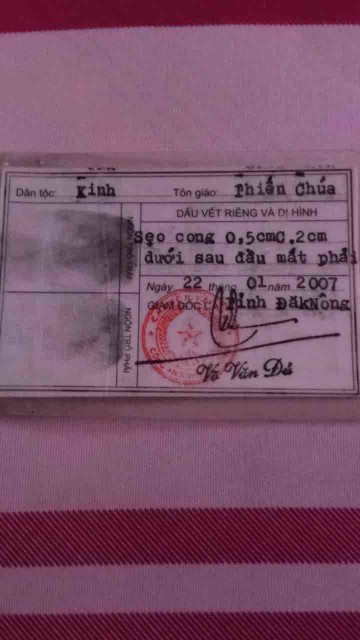 Dân tộc: Kinh Tôn giáo: Thiên Chúa
DẤU VẾT RIÊNG VÀ DỊ HÌNH
Sẹo cong 0,5cmC.2cm
dưới sau đầu mắt phải
Ngày 22 tháng 01 năm 2007
GIÁM ĐỐC C Tỉnh ĐăkNông
NGÓN TRỎ TRÁI
NGÓN TRỎ PHẢI
Võ Văn Đủ